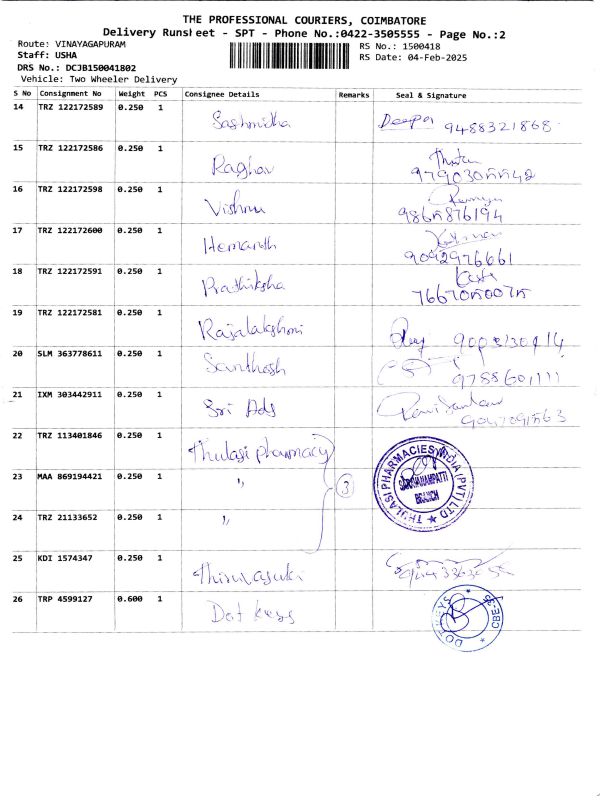 THE PROFESSIONAL COURIERS, COIMBATORE
Delivery Runsheet - SPT - Phone No.:0422-3505555 - Page No.:2
Route: VINAYAGAPURAM RS No.: 1500418
Staff: USHA RS Date: 04-Feb-2025
DRS No.: DCJB150041802
Vehicle: Two Wheeler Delivery
S No Consignment No Weight PCS Consignee Details Remarks Seal & Signature
14 TRZ 122172589 0.250 1 Sashmidha Deepa 9488321868
15 TRZ 122172586 0.250 1 Raghav
16 TRZ 122172598 0.250 1 Vishnu 9865876194
17 TRZ 122172600 0.250 1 Hemanth 9092976661
18 TRZ 122172591 0.250 1 Prathiksha
19 TRZ 122172581 0.250 1 Rajalakshmi
20 SLM 363778611 0.250 1 Santhosh
21 IXM 303442911 0.250 1 Sri Ads
22 TRZ 113401846 0.250 1 Thulasi pharmacy
23 MAA 869194421 0.250 1 " 3
24 TRZ 21133652 0.250 1 "
THULASI PHARMACIES INDIA (PVT) LTD
SARAVANAMPATTI
BRANCH
25 KDI 1574347 0.250 1 Thiruvasuki
26 TRP 4599127 0.600 1 Dot keys
DOT KEYS
CBE-35